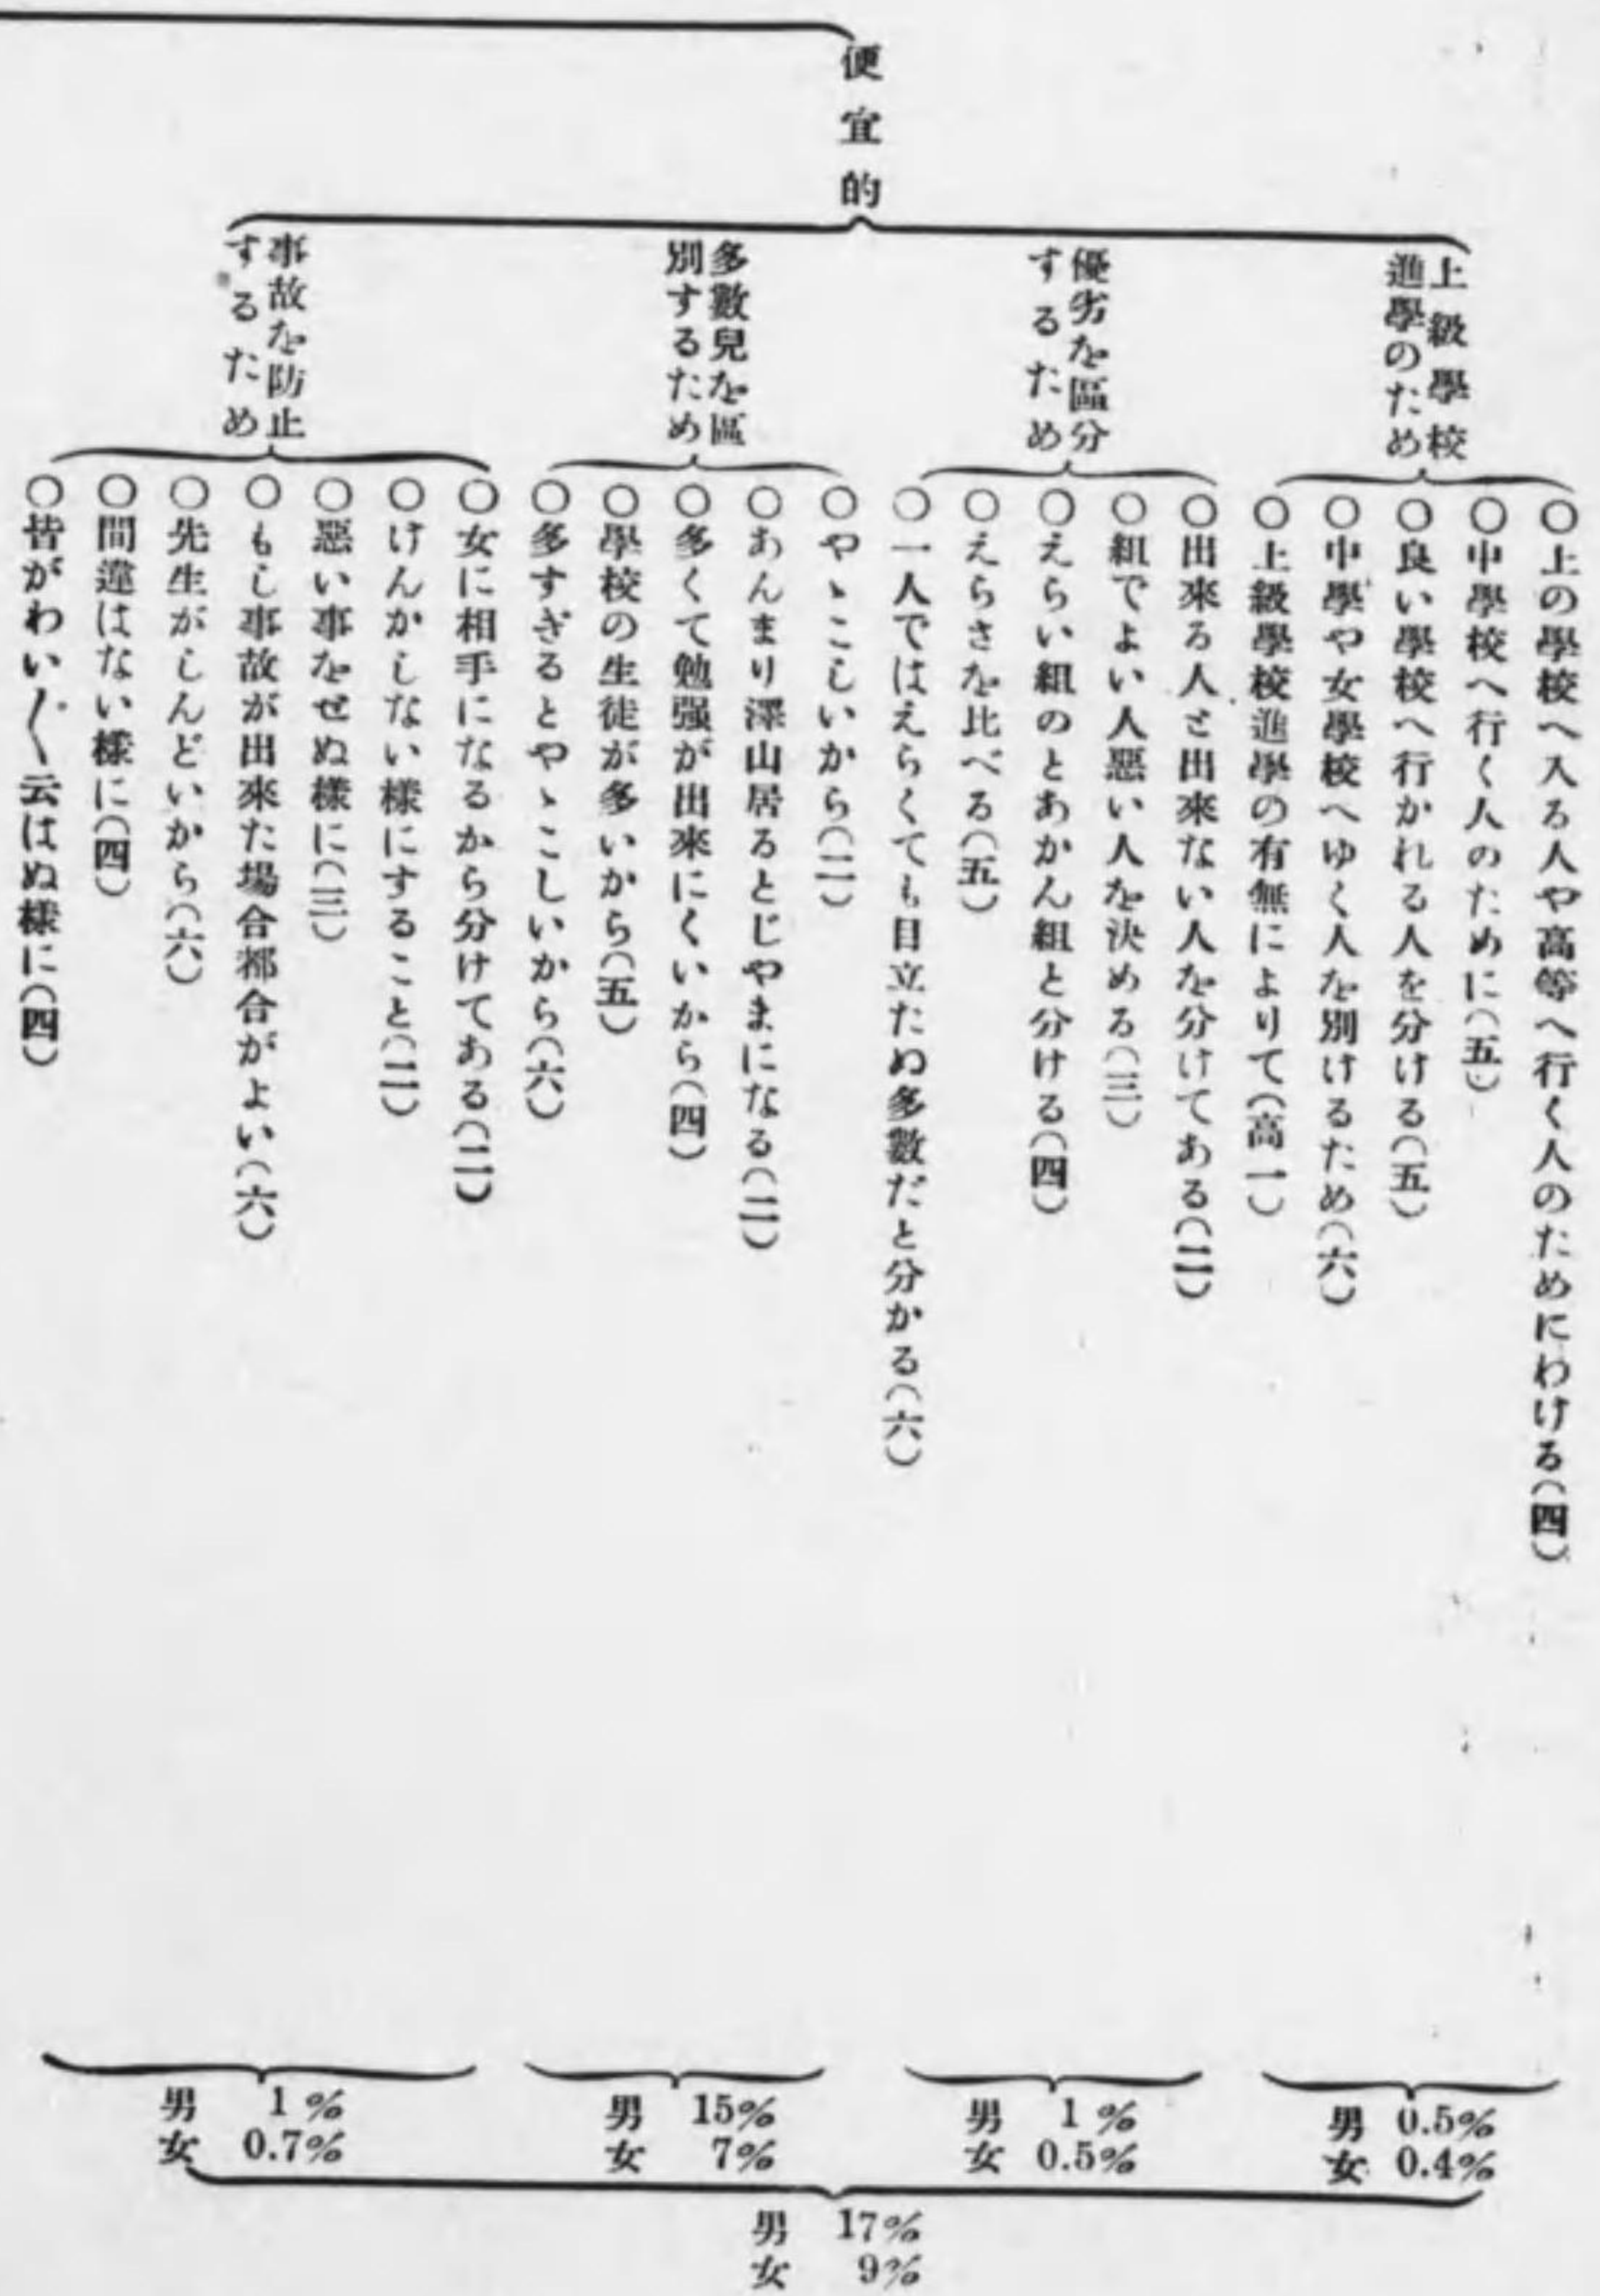 便宜的
上級學校
進學のため
○上の學校へ入る人や高等へ行く人のためにわける(四)
○中學校へ行く人のために(五)
○良い學校へ行かれる人を分ける(五)
○中學や女學校へゆく人を別けるため(六)
○上級學校進學の有無によりて(高一)
男 0.5%
女 0.4%
優劣を區分
するため
○出來る人と出來ない人を分けてある(二)
○組でよい人惡い人を決める(三)
○えらい組のとあかん組と分ける(四)
○えらさを比べる(五)
○一人ではえらくても目立たぬ多數だと分かる(六)
男 1%
女 0.5%
多數兒を區
別するため
○やゝこしいから(二)
○あんまり澤山居るとじやまになる(二)
○多くて勉强が出來にくいから(四)
○學校の生徒が多いから(五)
○多すぎるとやゝこしいから(六)
男 15%
女 7%
事故を防止
するため
○女に相手になるから分けてある(二)
○けんかしない樣にすること(二)
○惡い事をせぬ樣に(三)
○もし事故が出來た場合都合がよい(六)
○先生がしんどいから(六)
○間違はない樣に(四)
○皆がわい〱云はぬ樣に(四)
男 1%
女 0.7%
男 17%
女 9%